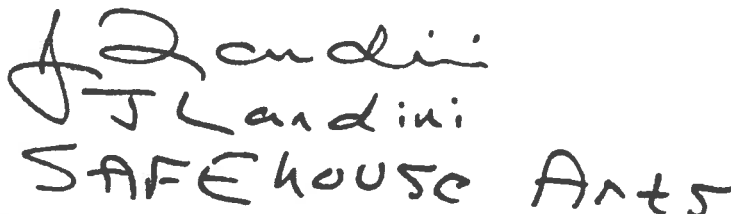 J Landini
J Landini
SAFEhouse Arts